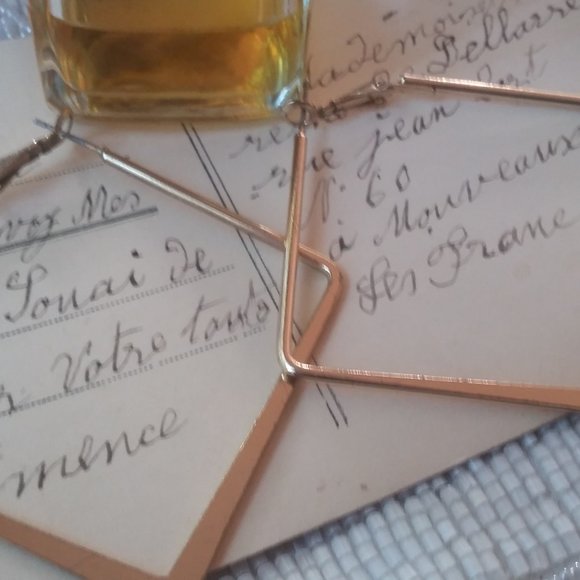 Mes
Souai de
Votre tanto
mence
Mademoisel
Dellarre
rue jean Bart
N: 60
à Mouveaux
Les France